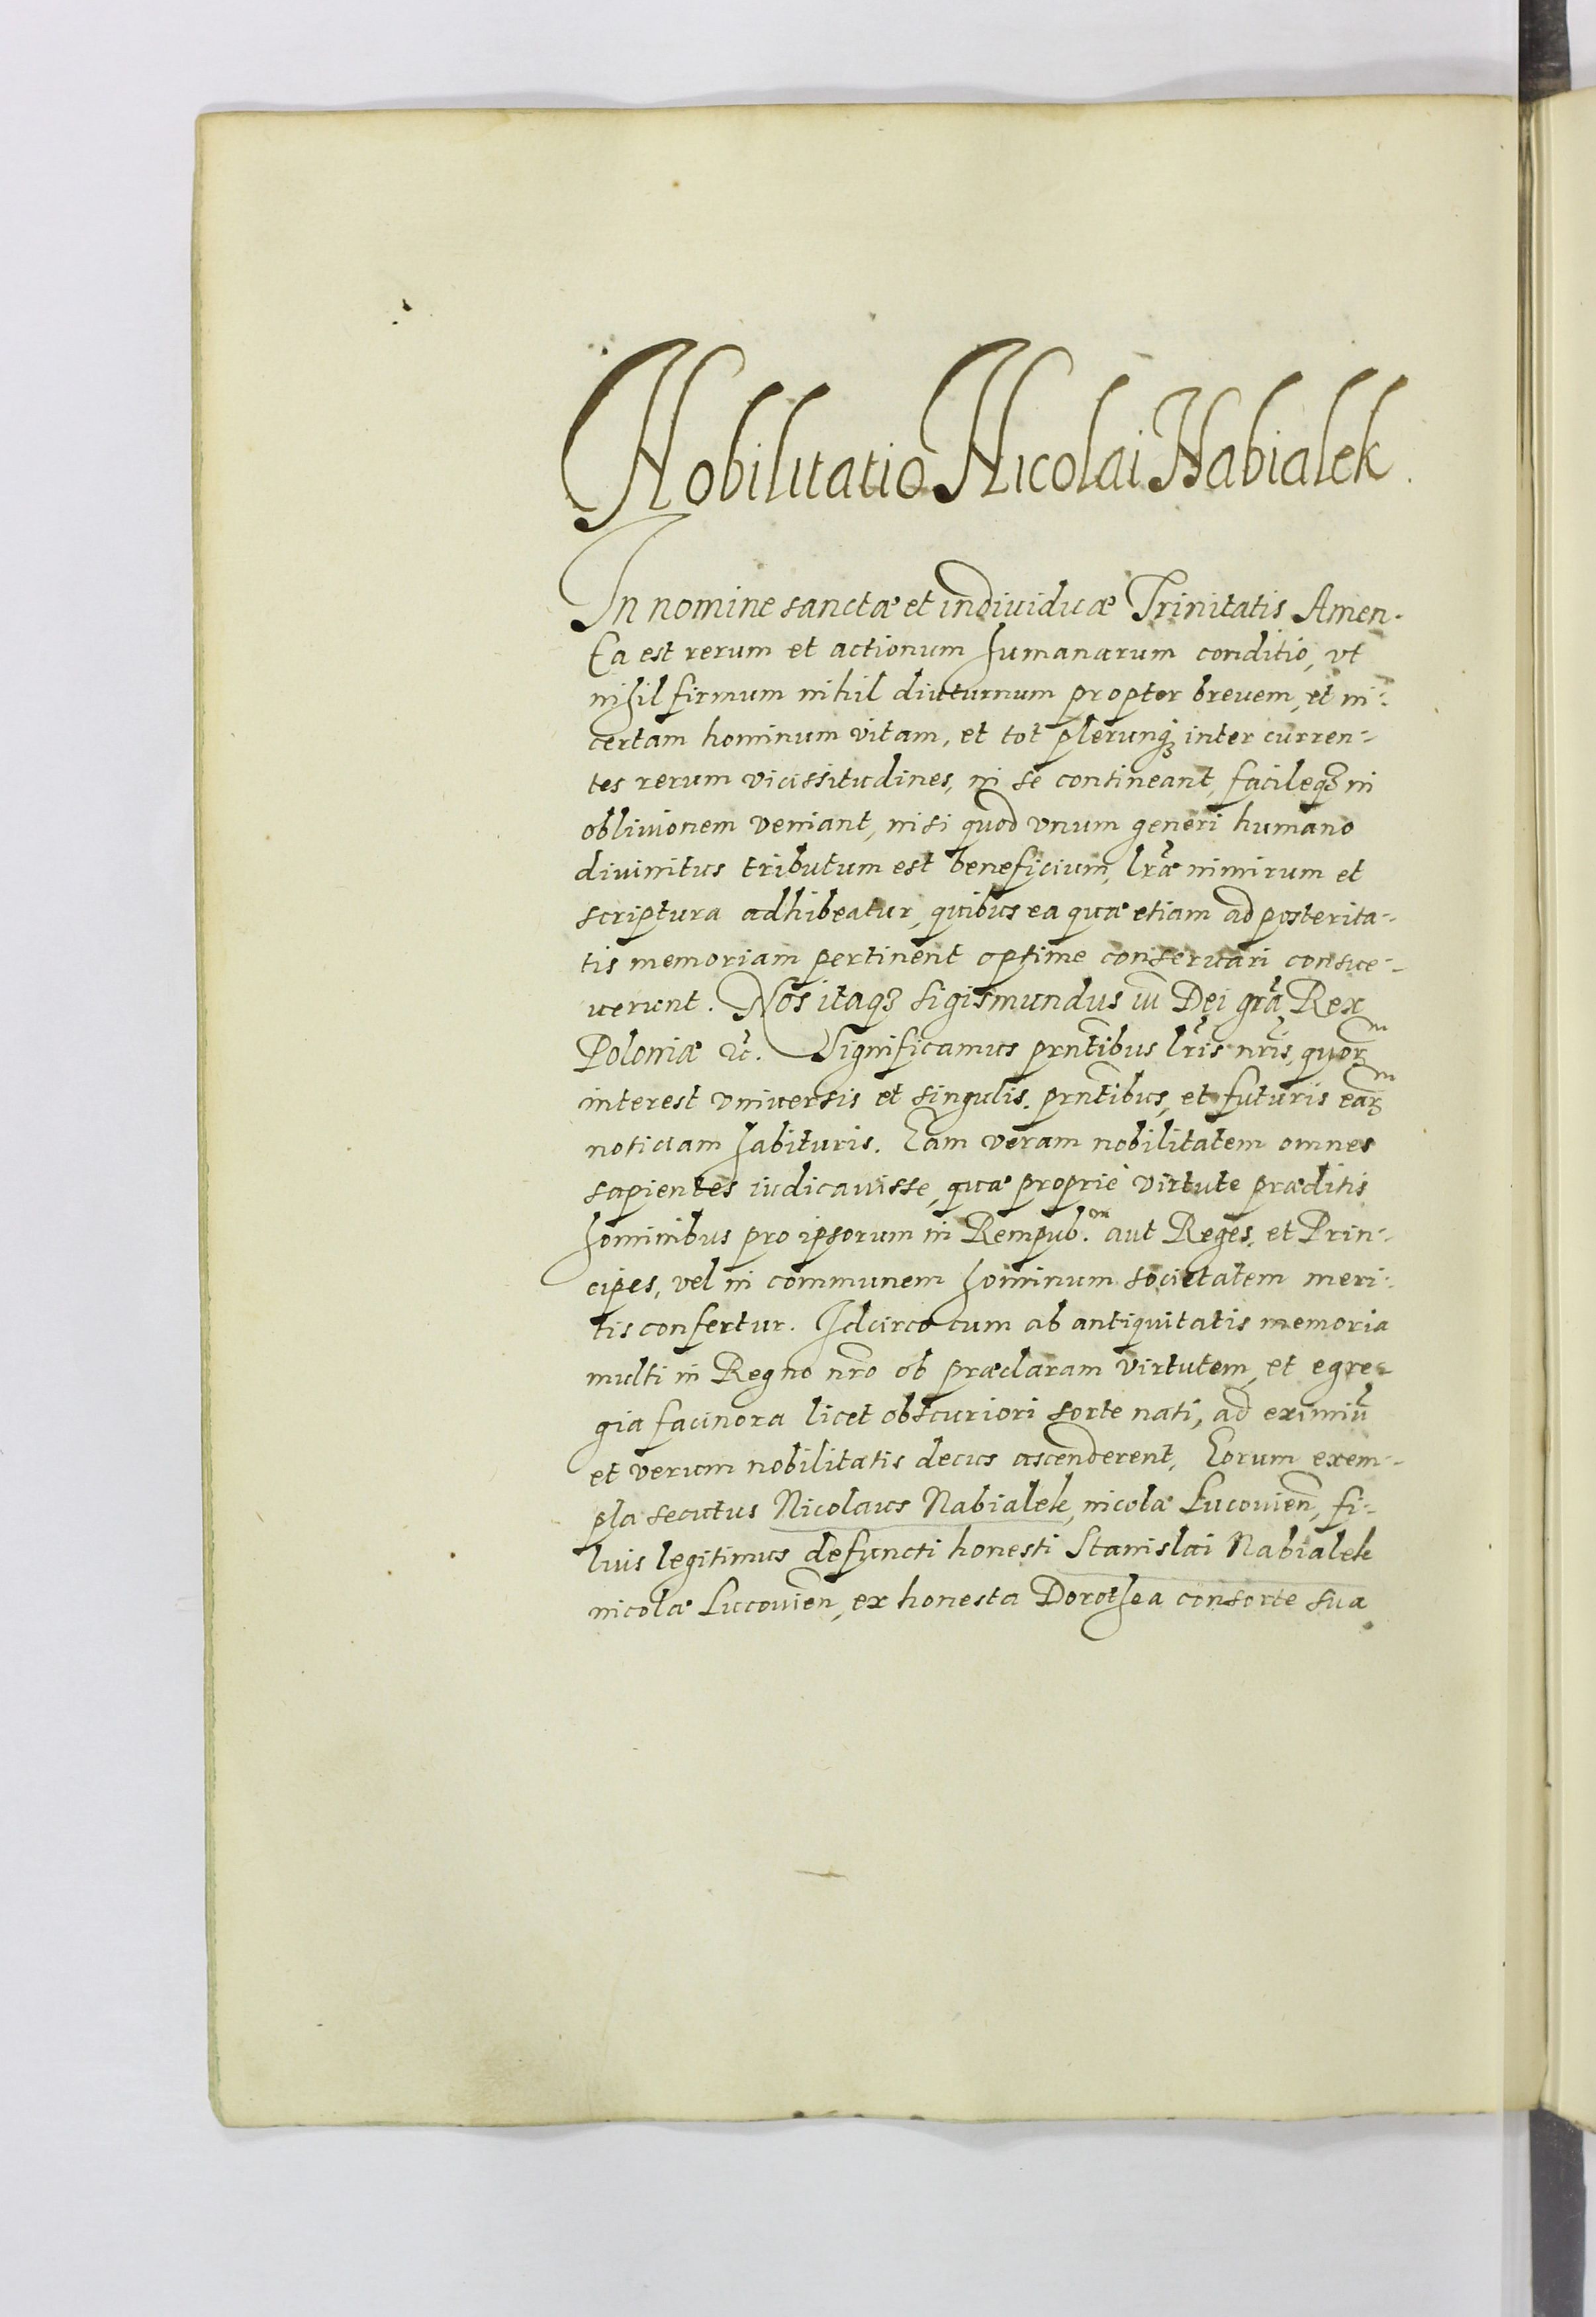 Nobilitatio Nicolai Nabialek.
In nomine sanctæ et indiuiduæ Trinitatis Amen.
Ea est rerum et actionum humanarum conditio, vt
nihil firmum nihil diuturnum propter breuem, et in-
certam hominum vitam, et tot plerunqꝫ inter curren-
tes rerum vicissitudines, in se contineant, facileqꝫ in
obliuionem veniant, nisi quod vnum generi humano
diuinitus tributum est beneficium, lr̃æ nimirum et
scriptura adhibeatur, quibus ea quæ etiam ad posterita-
tis memoriam pertinent optime conseruari consue-
uerunt. Nos itaqꝫ Sigismundus iii Dei gr̃a Rex
Poloniæ &c. Significamus prñtibus lr̃is nr̃is, quorᵐ
interest vniuersis et singulis, prñtibus, et futuris earᵐ
notitiam habituris. Eam veram nobilitatem omnes
sapientes iudicauisse, quæ proprie virtute præditis
hominibus pro ipsorum in Rempub. aut Reges, et Prin-
cipes, vel in communem hominum societatem meri-
tis confertur. Idcirco cum ab antiquitatis memoria
multi in Regno nr̃o ob præclaram virtutem, et egre-
gia facinora licet obscuriori sorte nati, ad eximiũ
et verum nobilitatis decus ascenderent, Eorum exem-
pla secutus Nicolaus Nabialek, incola Lucouieñ, fi-
lius legitimus defuncti honesti Stanislai Nabialek
incolæ Lucouieñ, ex honesta Dorothea consorte sua